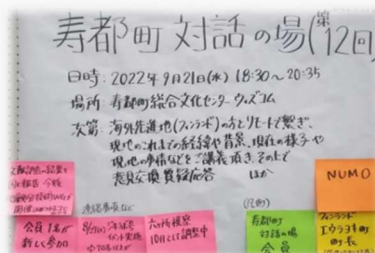 寿都町 対話の場(第12回)
日時:2022年9月21日(水) 18:30〜20:35
場所:寿都町総合文化センター ウィズコム
次第:海外先進地(フィンランド)の方とリモートで繋ぎ、
現地のこれまでの経緯や背景、現在の様子や
現地の事情などをご講義頂き、その上で
意見交換、質疑応答 ほか
NUMO
会員1名が
新しく参加
六ヶ所視察
10月として調整中
寿都町
対話の場
会員
フィンランド
エウラヨキ町
町長